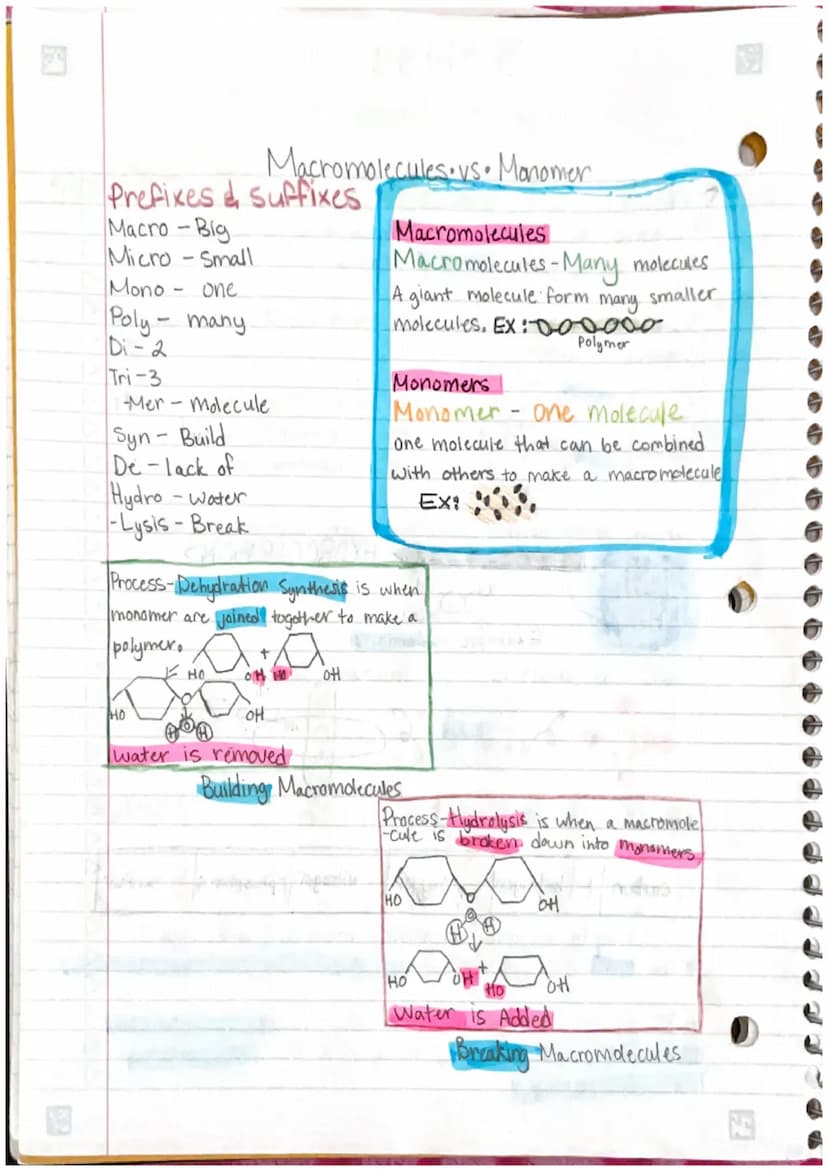 Macromolecules·vs·Monomer
Prefixes & Suffixes
Macro - Big
Micro - Small
Mono - one
Poly - many
Di - 2
Tri - 3
-Mer - molecule
Syn - Build
De - lack of
Hydro - water
-Lysis - Break
Macromolecules
Macromolecules - Many molecules
A giant molecule form many smaller
molecules. Ex:
Polymer
Monomers
Monomer - one molecule
one molecule that can be combined
with others to make a macromolecule
Ex:
Process-Dehydration Synthesis is when
monomer are joined together to make a
polymer.
+
HO OH HO OH
HO O OH
H O H
water is removed
Building Macromolecules
Process-Hydrolysis is when a macromole
-cule is broken down into monomers
HO O OH
H O H
HO OH + HO OH
Water is Added
Breaking Macromolecules